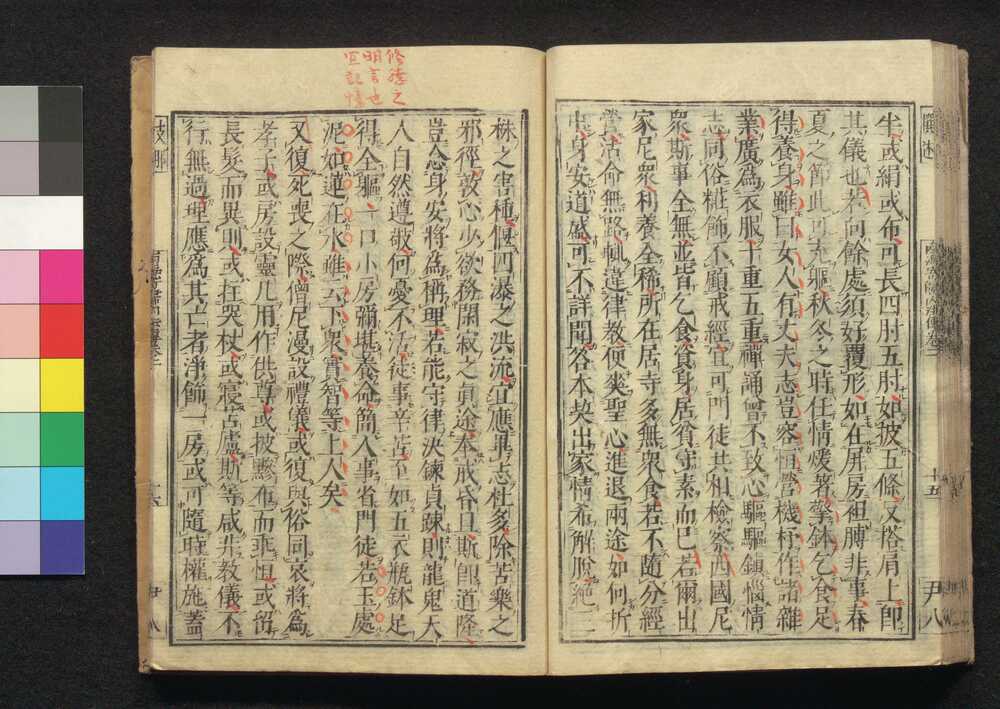 坐或絹或布可長四肘五肘如披五條反搭肩上即
其儀也若向餘處須好覆形如在屏房袒膊非事春
夏之節此可充軀秋冬之時任情煖著擎鉢乞食足
得養身雖曰女人有丈夫志豈容恒營機杼作諸雜
業廣為衣服十重五重禪誦曾不致心驅驅鎮惱情
志同俗粧飾不顧戒經宜可門徒共相檢察西國尼
眾斯事全無並皆乞食資身居貧守素而已若爾出
家尼眾利養全稀所在居寺多無眾食若不隨分經
營活命無路輒違律教便爽聖心進退兩途如何折
中身安道盛可不詳聞答本契出家情希解脫絕三
十五
尹八
修德之
明言也
宜記憶
株之害種偃四瀑之洪流宜應畢志杜多除苦樂之
邪徑敦心少欲務閑寂之真途奉戒昏旦斯即道隆
豈念身安將為稱理若能守律決鍊貞疎則龍鬼天
人自然遵敬何憂不活徒事辛苦至如五衣瓶鉢足
得全軀一口小房彌堪養命簡人事省門徒若玉處
泥如蓮在水雖云下眾實智等上人矣
又復死喪之際僧尼漫設禮儀或復與俗同哀將為
孝子或房設靈几用作供養或披黲布而乖恒或留
長髮而異則或拄哭杖或寢苫廬斯等咸非教儀不
行無過理應為其亡者淨飾一房或可隨時權施蓋